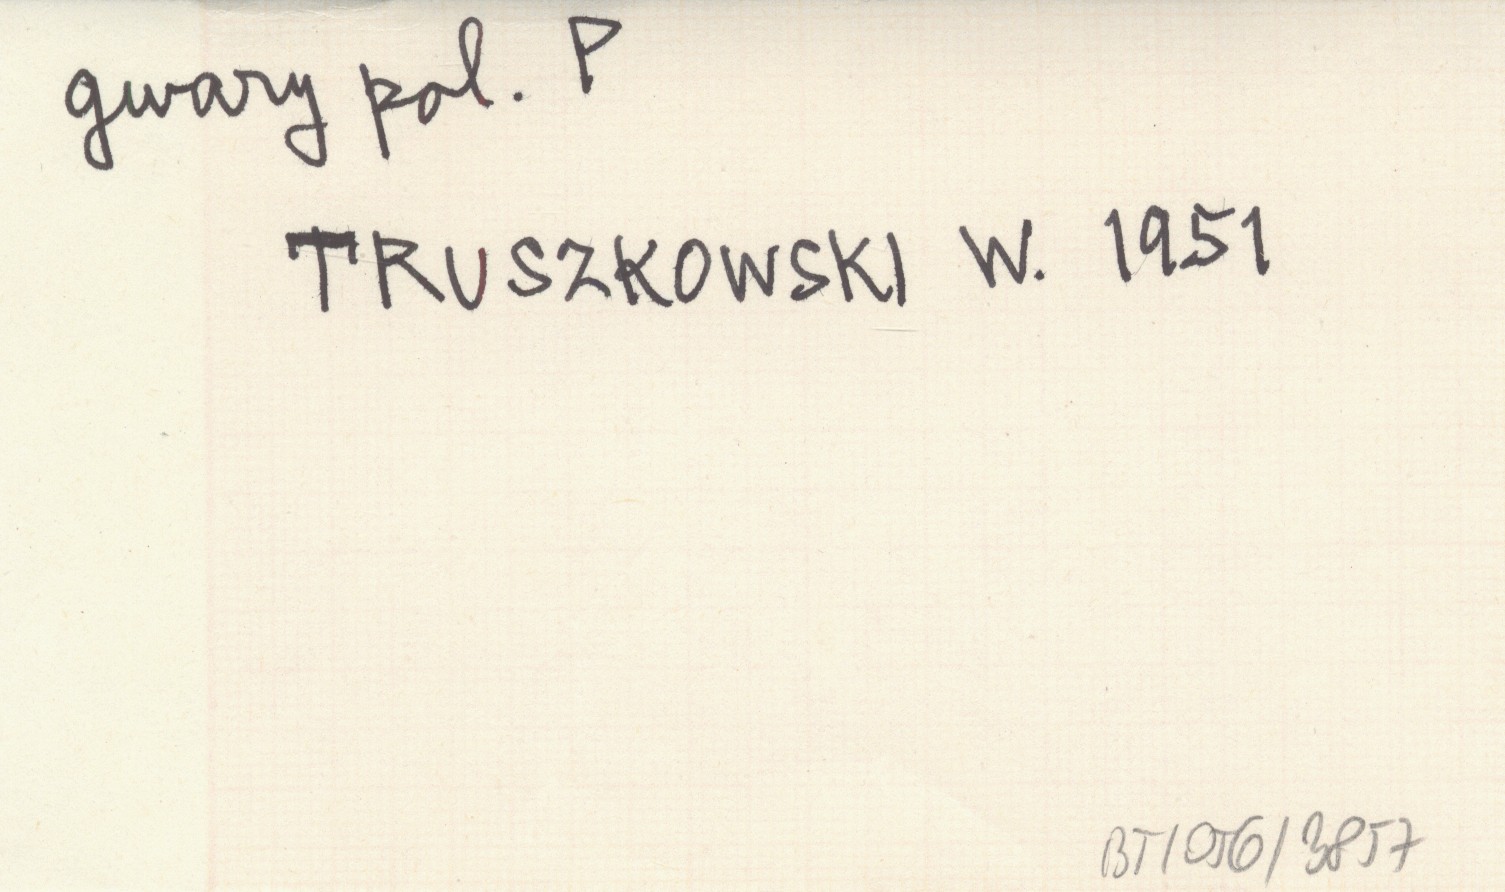 gwary pol. P
TRUSZKOWSKI W. 1951
BT/056/3857